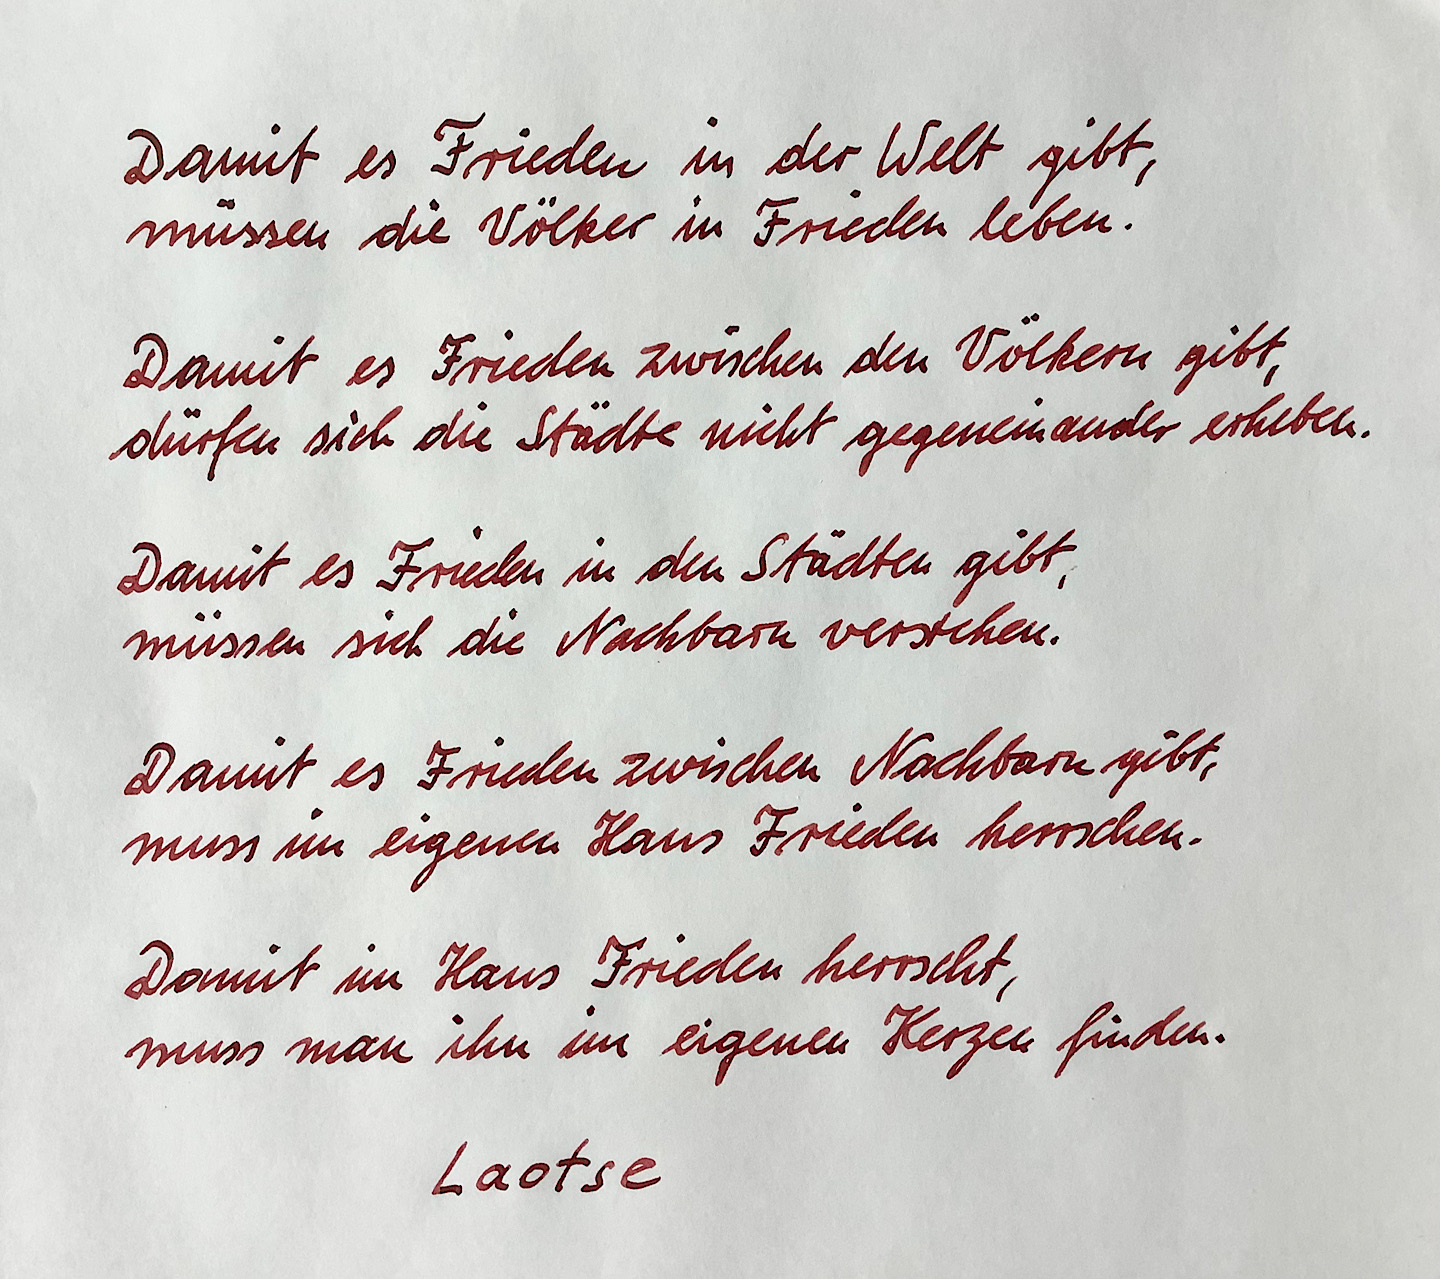 Damit es Frieden in der Welt gibt,
müssen die Völker in Frieden leben.
Damit es Frieden zwischen den Völkern gibt,
dürfen sich die Städte nicht gegeneinander erheben.
Damit es Frieden in den Städten gibt,
müssen sich die Nachbarn verstehen.
Damit es Frieden zwischen Nachbarn gibt,
muss im eigenen Haus Frieden herrschen.
Damit im Haus Frieden herrscht,
muss man ihn im eigenen Herzen finden.
Laotse